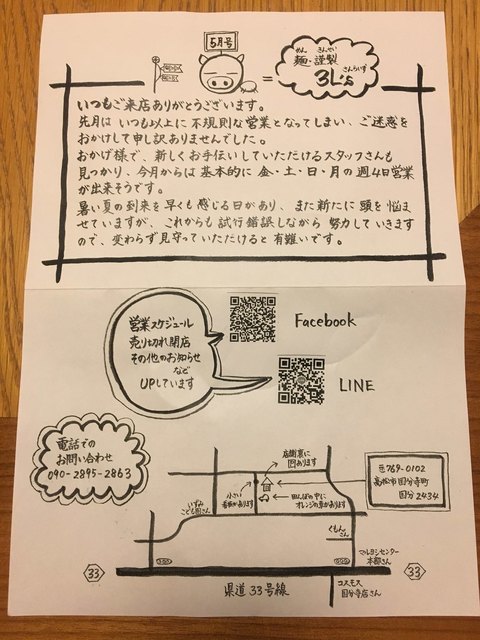 5月号
めん きんせい さんらいず
麺・謹製
3L's
いつもご来店ありがとうございます。
先月は いつも以上に 不規則な営業となってしまい、ご迷惑を
おかけして申し訳ありませんでした。
おかげ様で、新しくお手伝いしていただけるスタッフさんも
見つかり、今月からは 基本的に 金・土・日・月の週4日営業
が出来そうです。
暑い夏の到来を早くも感じる日があり、また新たに頭を悩ま
せていますが、これからも 試行錯誤しながら 努力していきます
ので、変わらず見守っていただけると有難いです。
営業スケジュール
売り切れ閉店
その他のお知らせ
など
UPしています
Facebook
LINE
電話での
お問い合わせ
090-2895-2863
店舗裏に
Pあります
〒769-0102
高松市国分寺町
国分2434
いずみ
こども園さん
小さい
看板があります
田んぼの中に
オレンジの車があります
くもん
さん
マルヨシセンター
本部さん
33
県道33号線
33
コスモス
国分寺店さん